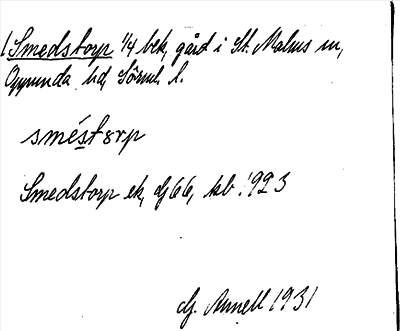 Smedstorp 1/4 bek, gård i St. Malms sn,
Oppunda hd, Sörml. l.
sméstorp
Smedstorp ek, dj 66, kb 1923
dj. Annell 1931